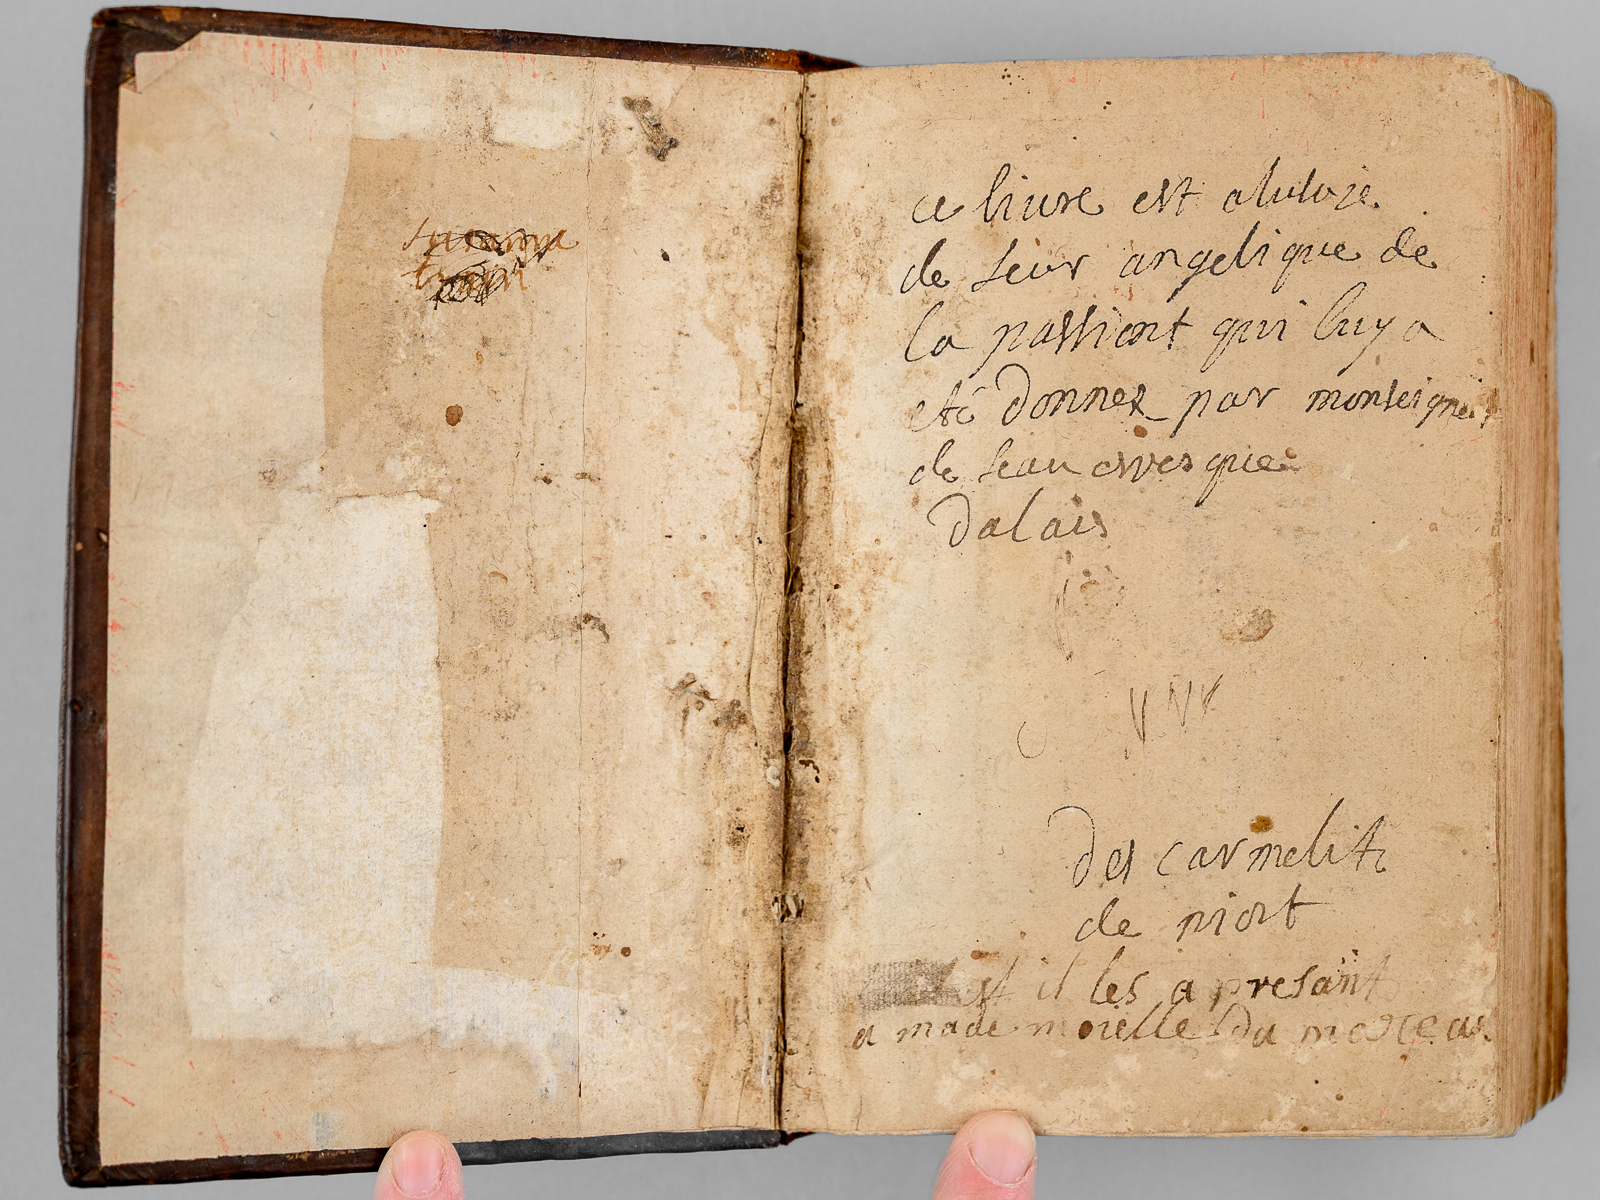 ce livre est aluzaje
de seur angelique de
la passiont qui luy a
eté donnez par monseigneur
de feau evesque
dalais
des carmelite
de niort
est il les a presant
a made moielle du morceau.